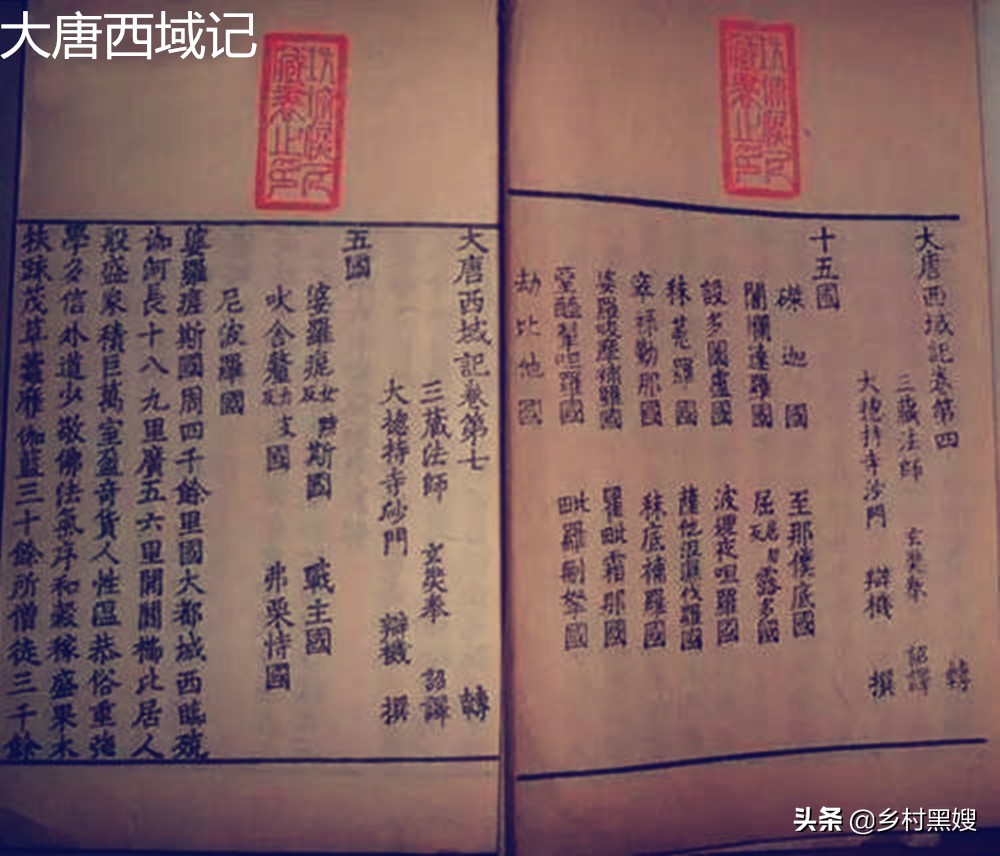 大唐西域记
大唐西域記卷第四 轉
三藏法師 玄奘奉 詔譯
大揔持寺沙門 辯機 撰
十五國
磔迦國 至那僕底國
闍爛達羅國 屈居勿反露多國
設多圖盧國 波理夜呾羅國
秣菟羅國 薩他泥濕伐羅國
窣祿勤那國 秣底補羅國
婆羅吸摩補羅國 瞿毗霜那國
堊醯掣呾羅國 毗羅刪拏國
劫比他國
大唐西域記卷第七 轉
三藏法師 玄奘奉 詔譯
大揔持寺砂門 辯機 撰
五國
婆羅痆女黠反斯國 戰主國
吠舍釐力支反國 弗栗恃國
尼波羅國
婆羅痆斯國周四千餘里國大都城西臨殑
伽河長十八九里廣五六里閭閻櫛比居人
殷盛家積巨萬室盈奇貨人性温恭俗重強
學多信外道少敬佛法氣序和穀稼盛果木
扶踈茂草靃靡伽藍三十餘所僧徒三千餘
头条 @乡村黑嫂